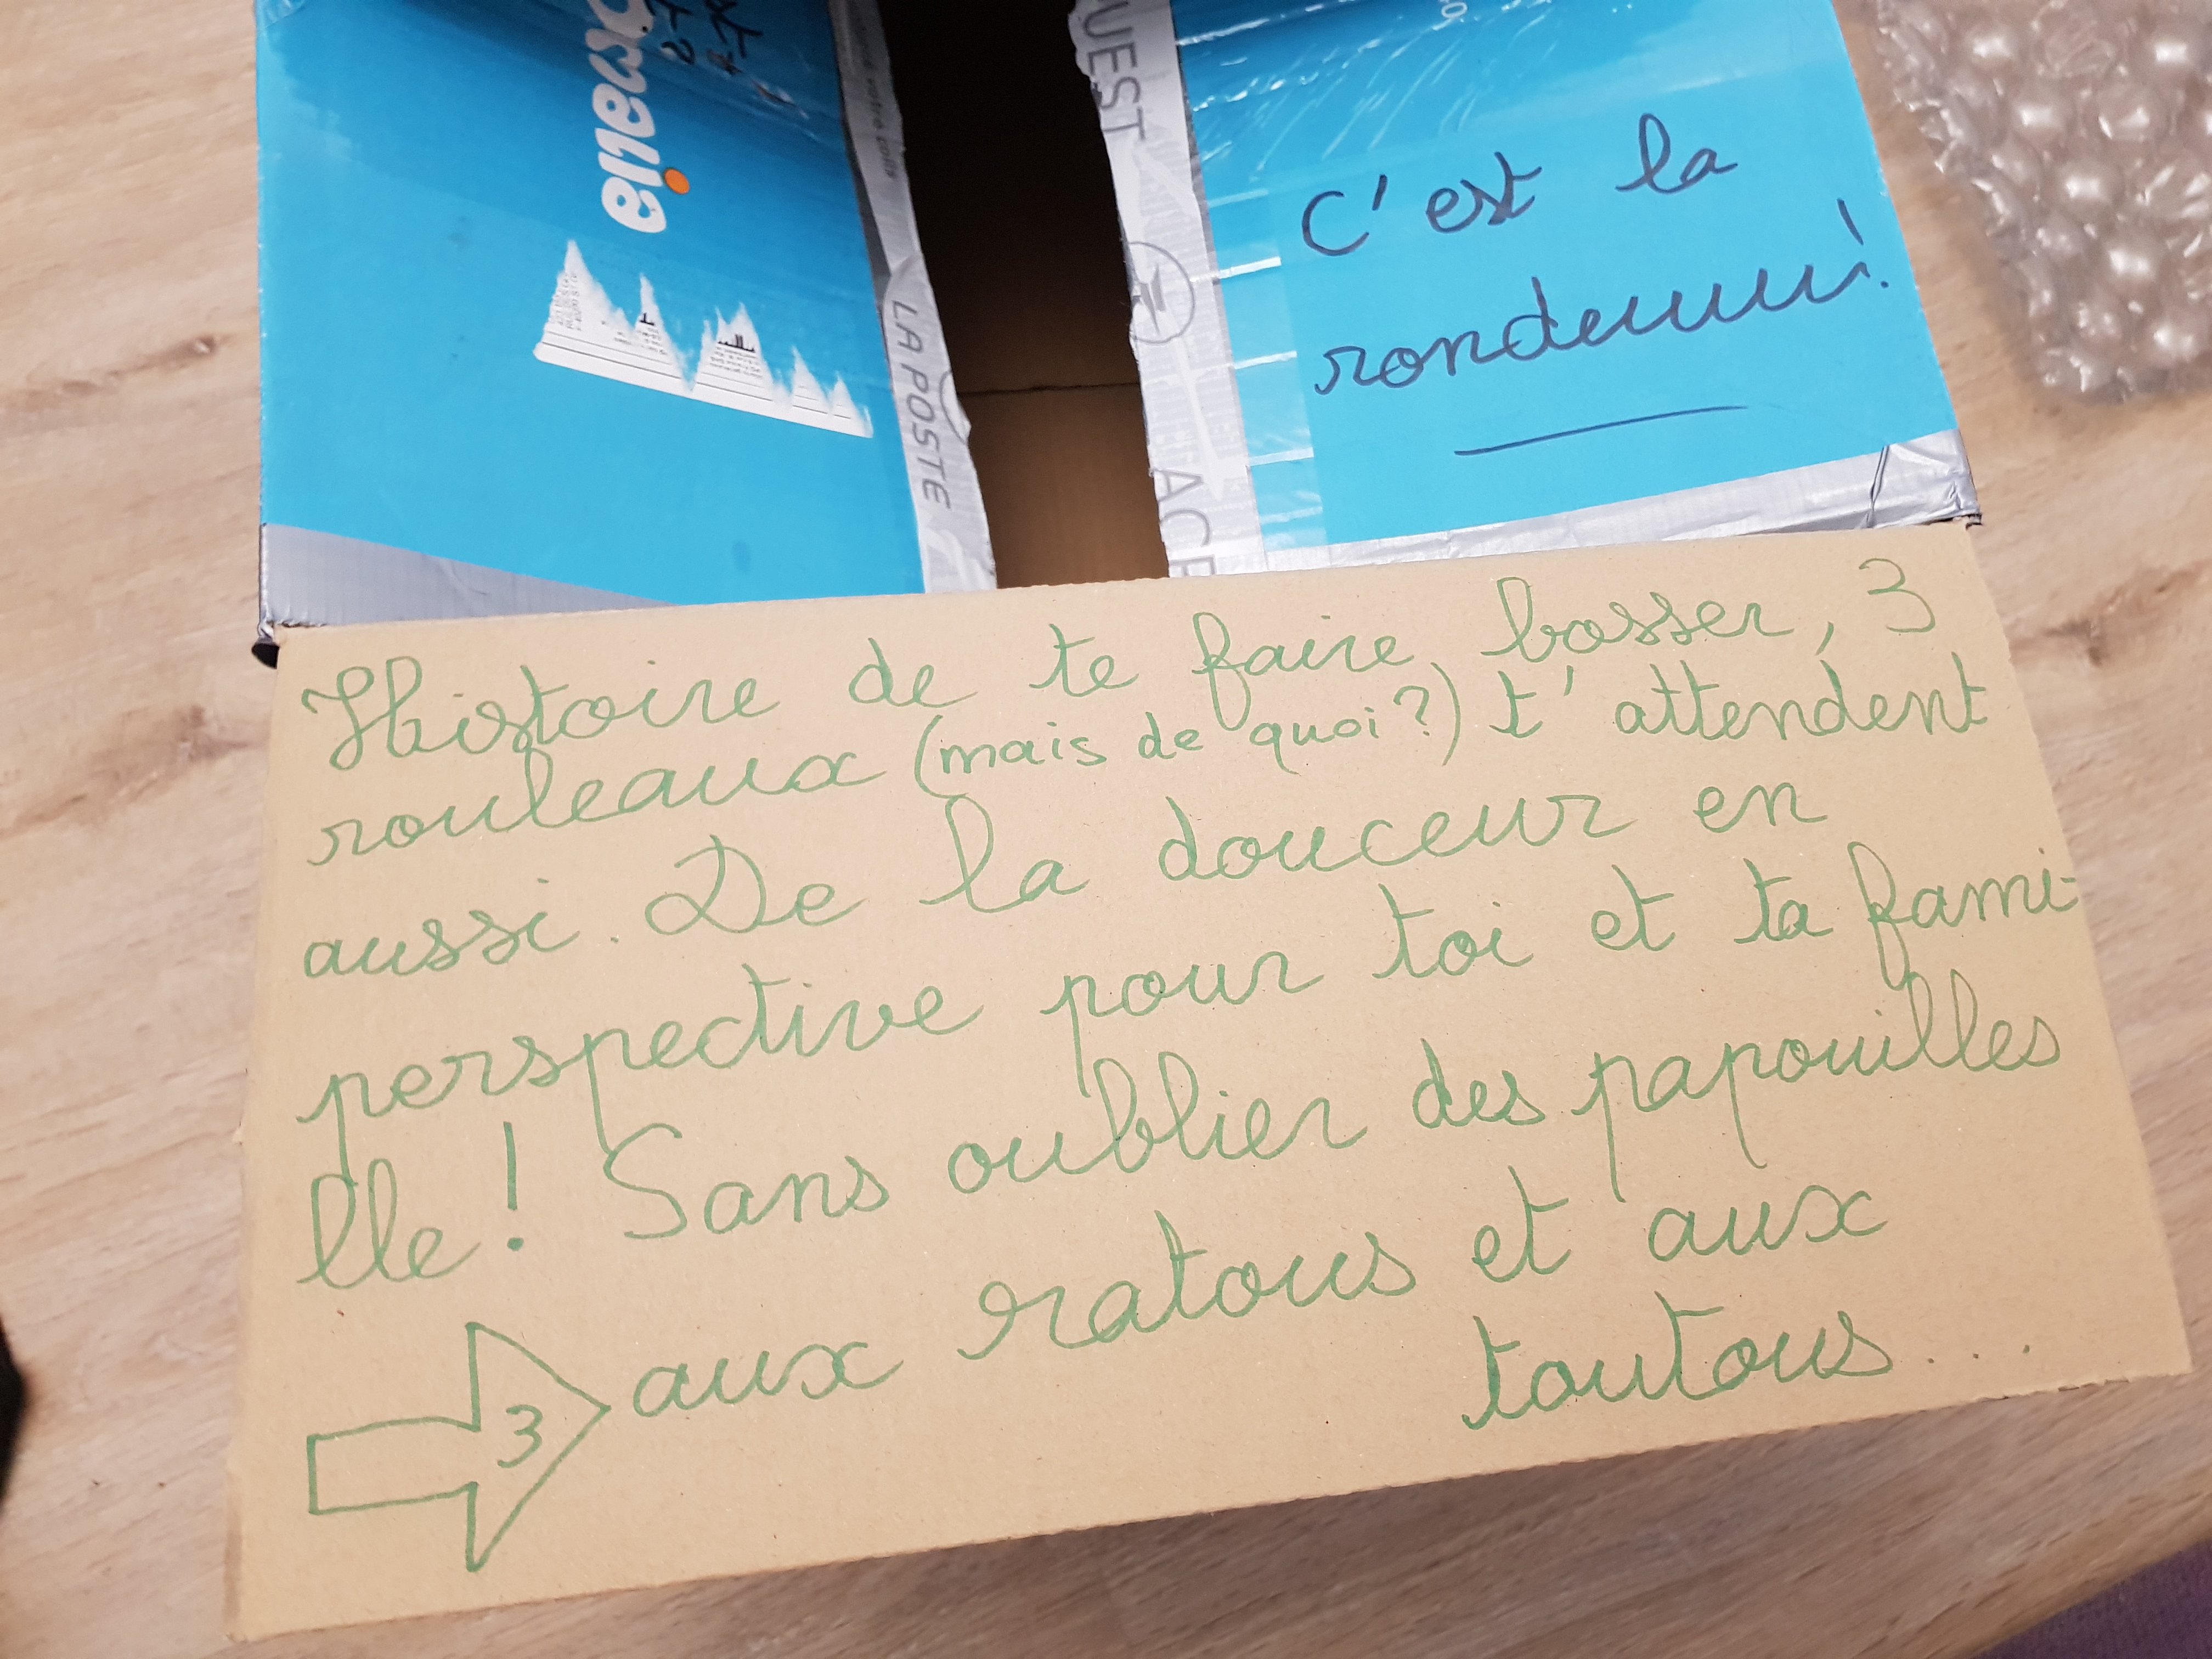 C'est la
rondeuuu!
LA POSTE
Histoire de te faire bosser, 3
rouleaux (mais de quoi?) t'attendent
aussi. De la douceur en
perspective pour toi et ta fami-
lle! Sans oublier des papouilles
3 aux ratous et aux
toutous...